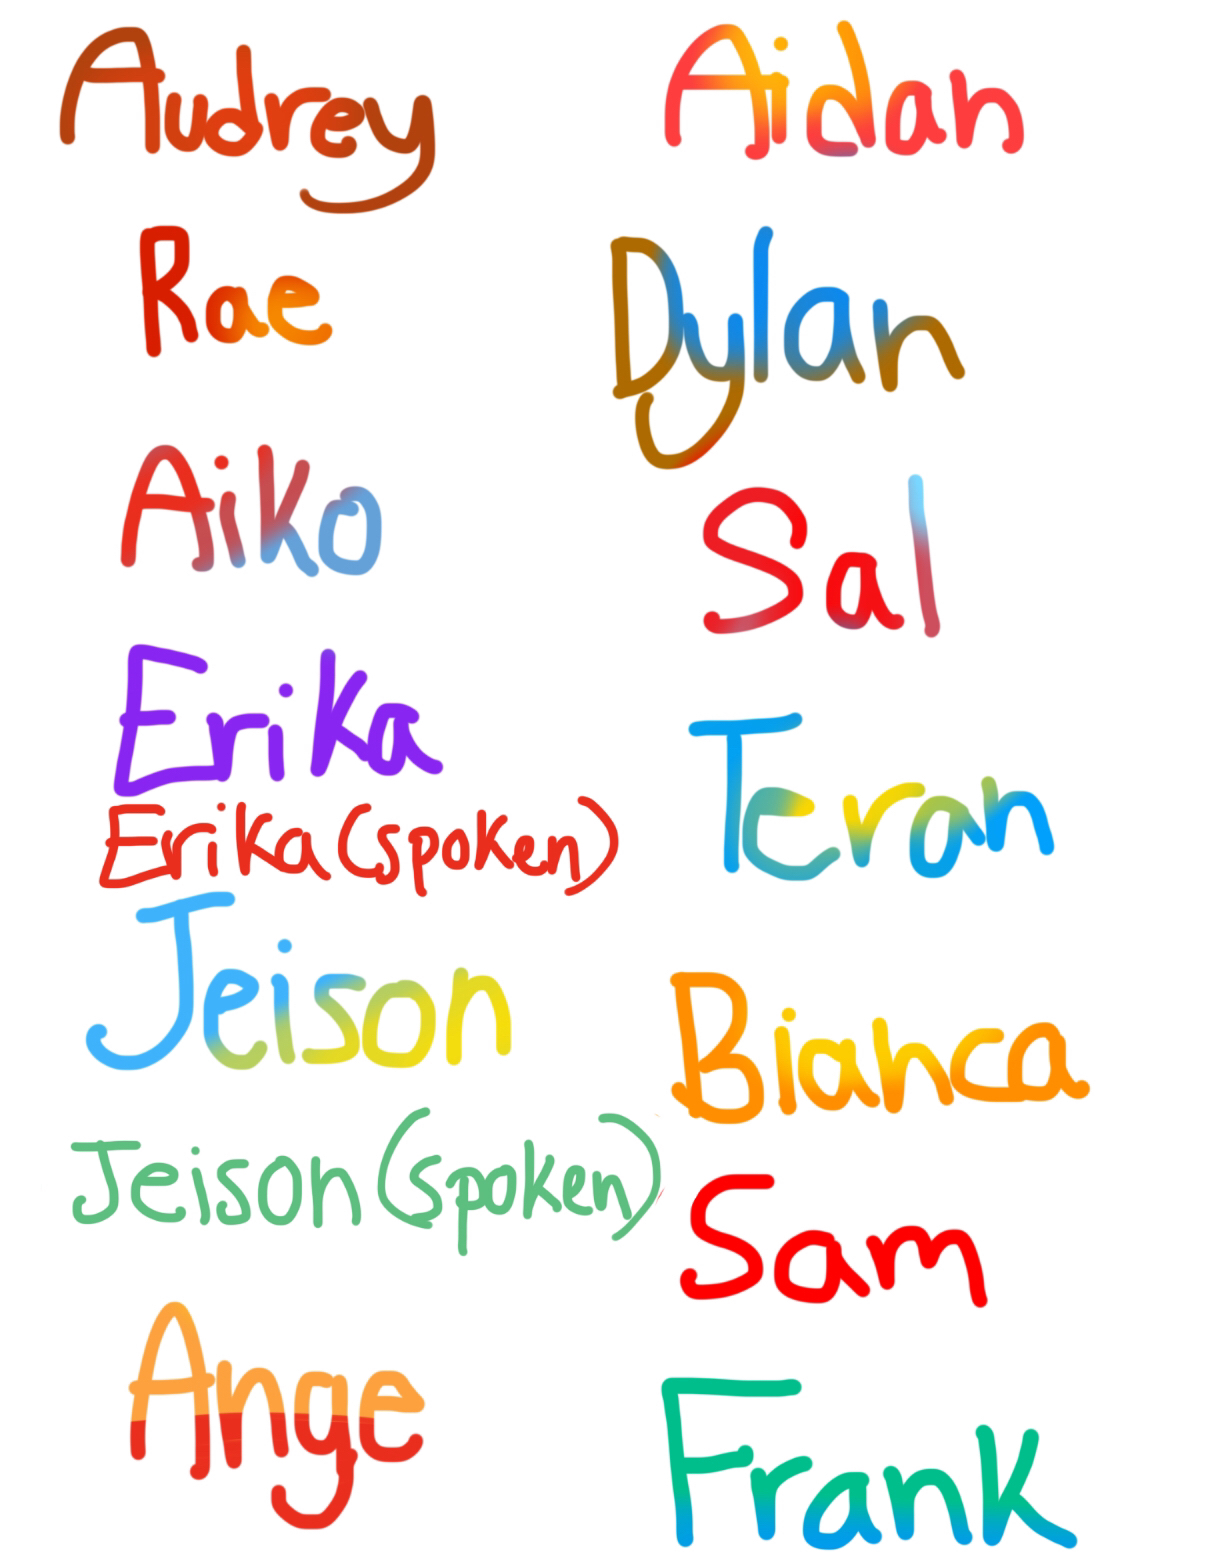 Audrey
Rae
Aiko
Erika
Erika (spoken)
Jeison
Jeison (spoken)
Ange
Aidan
Dylan
Sal
Teran
Bianca
Sam
Frank